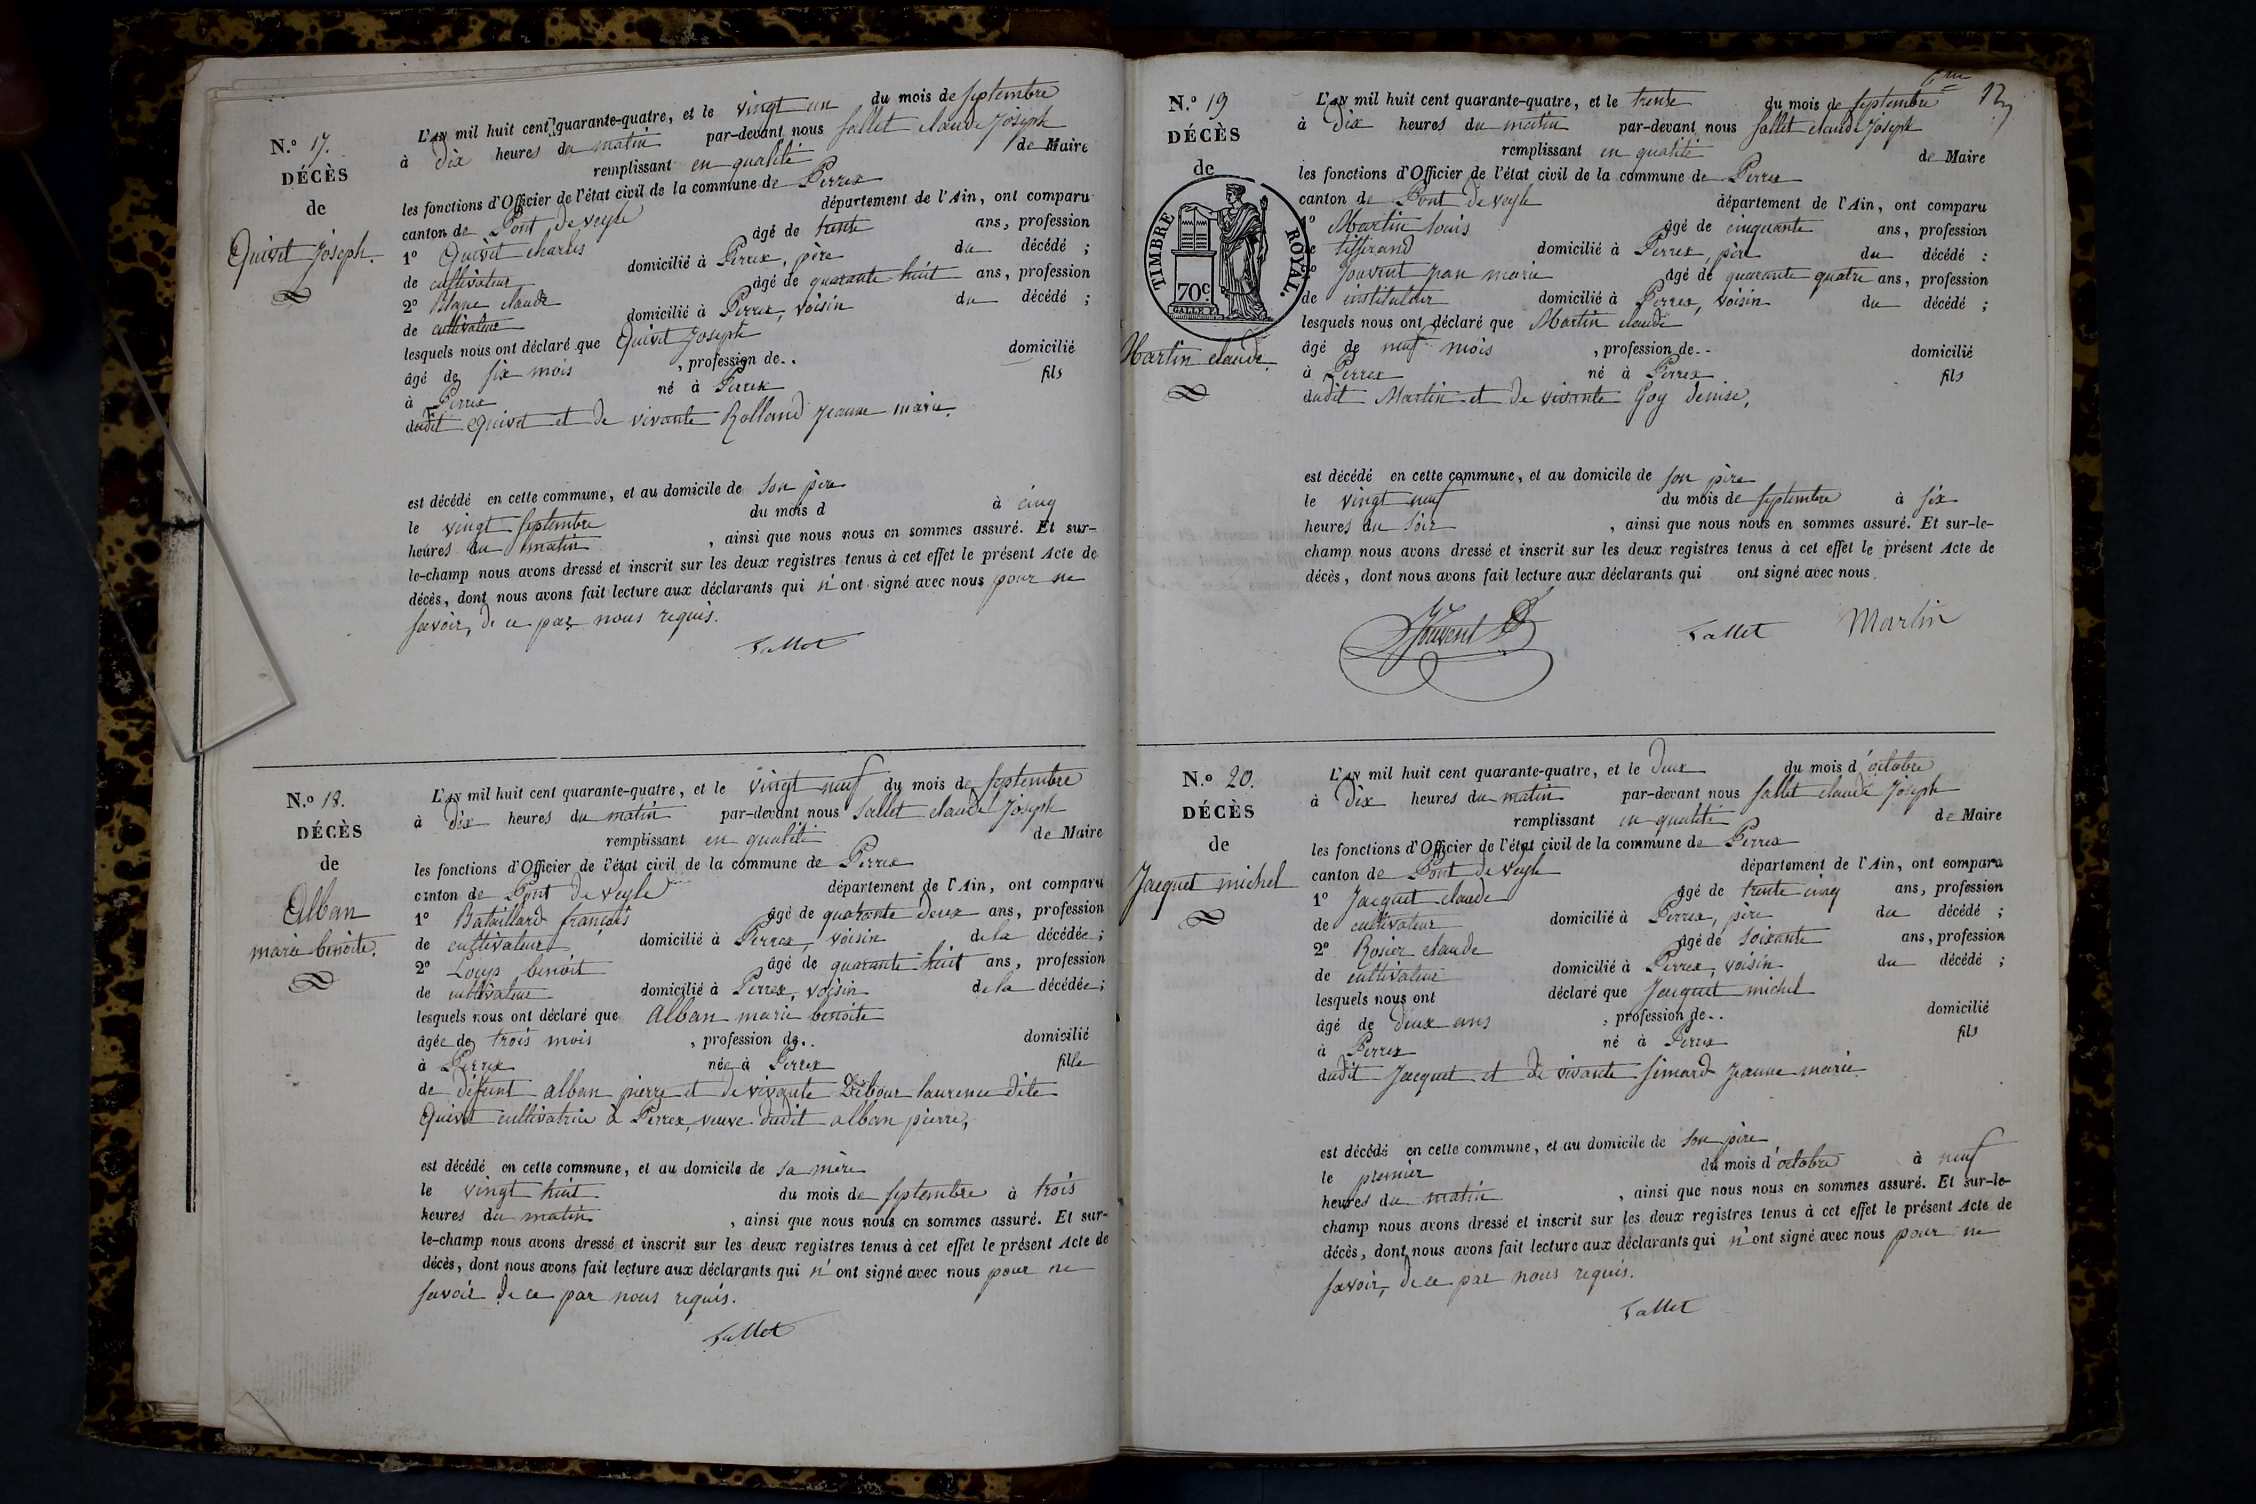 N.o 17.
DÉCÈS
de
Quivet Joseph.
L'AN mil huit cent quarante-quatre, et le vingt un du mois de septembre
à dix heures du matin par-devant nous Sallet claude Joseph
remplissant en qualité de Maire
les fonctions d'Officier de l'état civil de la commune de Perrex
canton de Pont de veyle département de l'Ain, ont comparu
1o Quivet charles âgé de trente ans, profession
de cultivateur domicilié à Perrex, père du décédé ;
2o Blanc claude âgé de quarante huit ans, profession
de cultivateur domicilié à Perrex, voisin du décédé ;
lesquels nous ont déclaré que Quivet Joseph
âgé de six mois , profession de.. domicilié
à Perrex né à Perrex fils
dudit Quivet et de vivante Rolland Jeanne marie.
est décédé en cette commune, et au domicile de son père
le vingt septembre du mois d à cinq
heures du matin , ainsi que nous nous en sommes assuré. Et sur-
le-champ nous avons dressé et inscrit sur les deux registres tenus à cet effet le présent Acte de
décès, dont nous avons fait lecture aux déclarants qui n'ont signé avec nous pour ne
savoir, de ce par nous requis.
Sallet
N.o 18.
DÉCÈS
de
Alban
marie benoite.
L'AN mil huit cent quarante-quatre, et le vingt neuf du mois de septembre
à dix heures du matin par-devant nous Sallet claude Joseph
remplissant en qualité de Maire
les fonctions d'Officier de l'état civil de la commune de Perrex
canton de Pont de veyle département de l'Ain, ont comparu
1o Bataillard françois âgé de quarante deux ans, profession
de cultivateur domicilié à Perrex, voisin de la décédée ;
2o Loup benoit âgé de quarante huit ans, profession
de cultivateur domicilié à Perrex, voisin de la décédée ;
lesquels nous ont déclaré que Alban marie benoite
âgée de trois mois , profession de.. domicilié
à Perrex née à Perrex fille
de défunt alban pierre et de vivante Debour laurence dite
Quivet cultivatrice à Perrex, veuve dudit alban pierre,
est décédé en cette commune, et au domicile de sa mère
le vingt huit du mois de septembre à trois
heures du matin , ainsi que nous nous en sommes assuré. Et sur-
le-champ nous avons dressé et inscrit sur les deux registres tenus à cet effet le présent Acte de
décès, dont nous avons fait lecture aux déclarants qui n'ont signé avec nous pour ne
savoir de ce par nous requis.
Sallet
6me 12
N.o 19
DÉCÈS
de
TIMBRE ROYAL.
70c
Martin claude.
L'AN mil huit cent quarante-quatre, et le trente du mois de septembre
à dix heures du matin par-devant nous Sallet claude Joseph
remplissant en qualité de Maire
les fonctions d'Officier de l'état civil de la commune de Perrex
canton de Pont de veyle département de l'Ain, ont comparu
1o Martin louis âgé de cinquante ans, profession
de tisserand domicilié à Perrex, père du décédé :
Jouvent Jean marie âgé de quarante quatre ans, profession
de instituteur domicilié à Perrex, voisin du décédé ;
lesquels nous ont déclaré que Martin claude
âgé de neuf mois , profession de.. domicilié
à Perrex né à Perrex fils
dudit Martin et de vivante Goy denise,
est décédé en cette commune, et au domicile de son père
le vingt neuf du mois de septembre à six
heures du soir , ainsi que nous nous en sommes assuré. Et sur-le-
champ nous avons dressé et inscrit sur les deux registres tenus à cet effet le présent Acte de
décès, dont nous avons fait lecture aux déclarants qui ont signé avec nous.
Jouvent Sallet Martin
N.o 20.
DÉCÈS
de
Jacquet michel
L'AN mil huit cent quarante-quatre, et le deux du mois d'octobre
à dix heures du matin par-devant nous Sallet claude Joseph
remplissant en qualité de Maire
les fonctions d'Officier de l'état civil de la commune de Perrex
canton de Pont de veyle département de l'Ain, ont comparu
1o Jacquet claude âgé de trente cinq ans, profession
de cultivateur domicilié à Perrex, père du décédé ;
2o Rosier claude âgé de soixante ans, profession
de cultivateur domicilié à Perrex, voisin du décédé ;
lesquels nous ont déclaré que Jacquet michel
âgé de deux ans , profession de.. domicilié
à Perrex né à Perrex fils
dudit Jacquet et de vivante simard Jeanne marie
est décédé en cette commune, et au domicile de son père
le premier du mois d'octobre à neuf
heures du matin , ainsi que nous nous en sommes assuré. Et sur-le-
champ nous avons dressé et inscrit sur les deux registres tenus à cet effet le présent Acte de
décès, dont nous avons fait lecture aux déclarants qui n'ont signé avec nous pour ne
savoir, de ce par nous requis.
Sallet